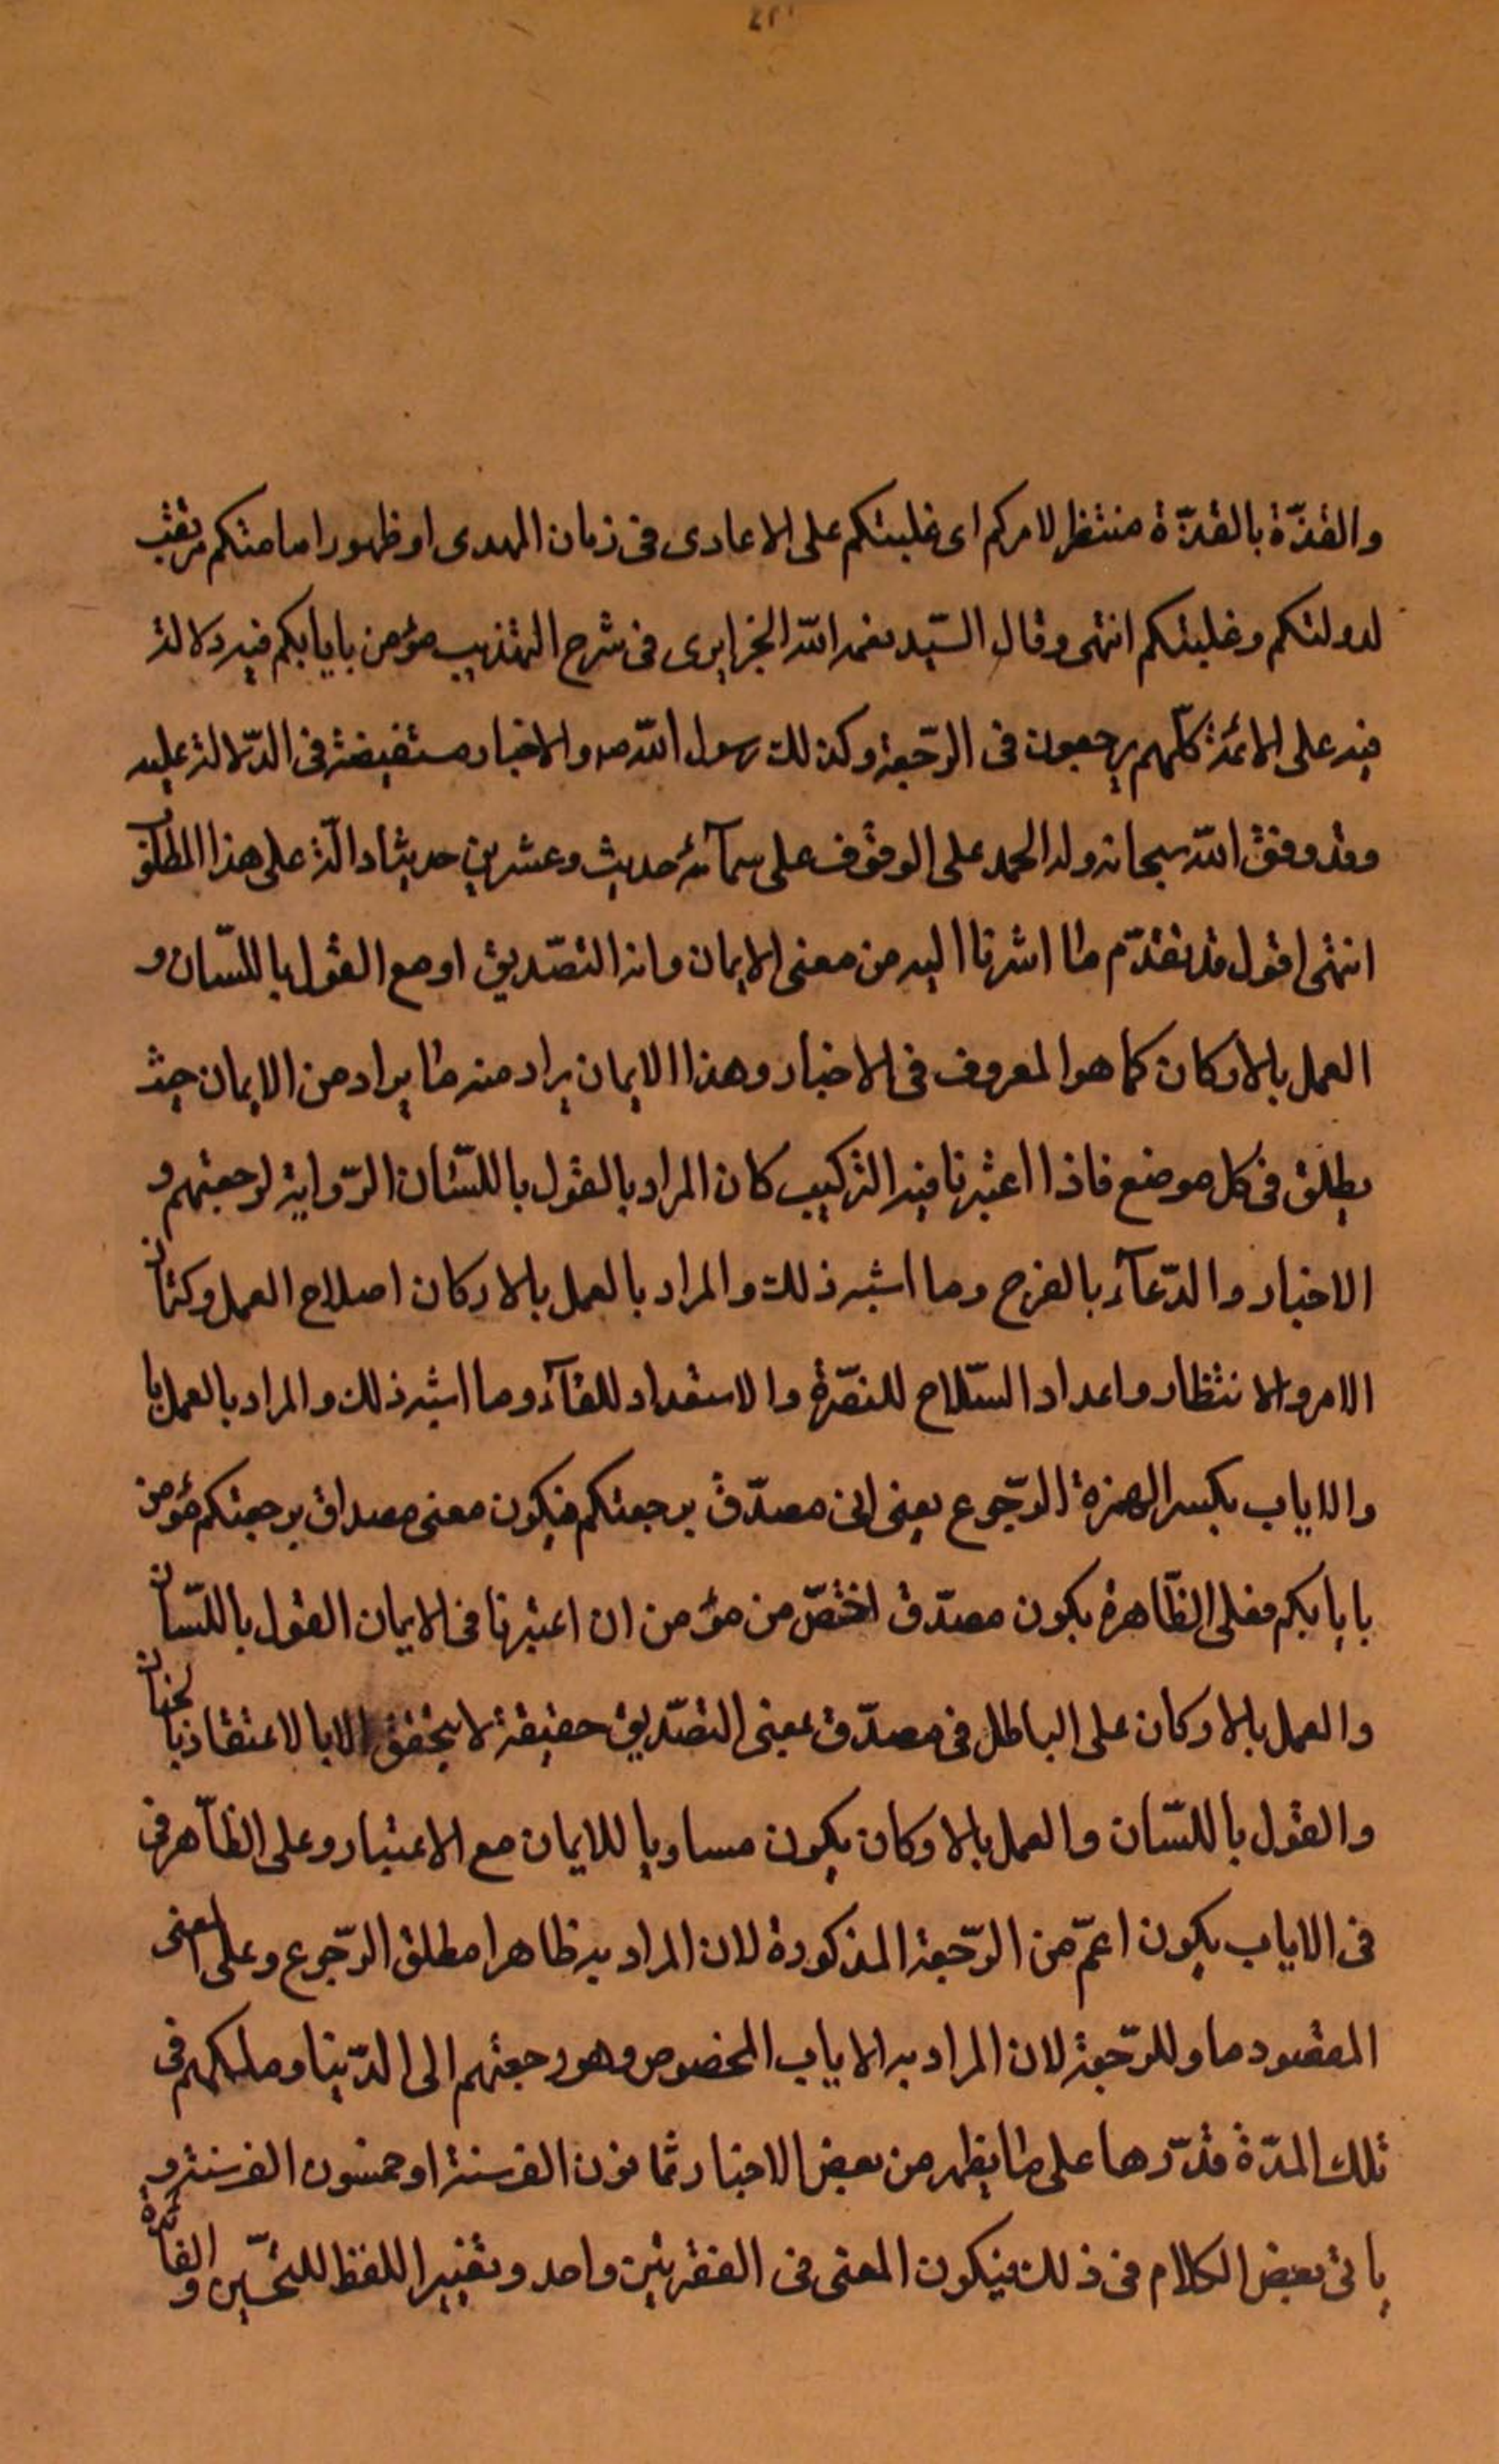 والقذّة بالقذّة منتظر لامركم اى غلبتكم على الاعادى فى زمان المهدى او ظهور امامتكم مرتقب
لدولتكم وغلبتكم انتهى وقال السّيد نعمة اللّه الجزايرى فى شرح التهذيب مؤمن بايابكم فيه دلالة
فيه على الائمة كلّهم يرجعون فى الرّجعة وكذلك رسول اللّه ص والاخبار مستفيضة فى الدّلالة عليه
وقد وفق اللّه سبحانه وله الحمد على الوقوف على ستمآئة حديث وعشرين حديثا دالّة على هذا المطلوب
انتهى اقول قد تقدّم ما اشرنا اليه من معنى الايمان وانه التصّديق او مع القول باللسّان و
العمل بالاركان كما هو المعروف فى الاخبار وهذا الايمان يراد منه ما يراد من الايمان حيث
يطلق فى كل موضع فاذا اعتبرنا فيه التركيب كان المراد بالقول باللسّان الرّواية لرجعتهم و
الاخبار والدّعآء بالفرج وما اشبه ذلك والمراد بالعمل بالاركان اصلاح العمل وكتمان
الامر والانتظار واعداد السّلاح للنصّرة والاستعداد للقآء وما اشبه ذلك والمراد بالعمل با
والاياب بكسر الهمزة الرّجوع يعنى انى مصدّق برجعتكم فيكون معنى مصداق برجعتكم مؤمن
بايابكم فعلى الظّاهرة يكون مصدّق اختصّ من مؤمن ان اعتبرنا فى الايمان القول باللسّان
والعمل بالاركان على الباطل فى مصدّق بمعنى التصّديق حقيقة لا يتحقق الا بالاعتقاد بالجنان
والقول باللسّان والعمل بالاركان يكون مساويا للايمان مع الاعتبار وعلى الظّاهر فى
فى الاياب يكون اعمّ من الرّجعة المذكورة لان المراد به ظاهرا مطلق الرّجوع وعلى المعنى
المقصود مساو للرّجعة لان المراد به الاياب المخصوص وهو رجعتهم الى الدّنيا وملكهم فى
تلك المدّة قدّرها على ما يظهر من بعض الاخبار ثمانون الف سنة او خمسون الف سنة و
ياتى بعض الكلام فى ذلك فيكون المعنى فى الفقرتين واحد وتغيير اللفظ للتحّسين و الفائدة